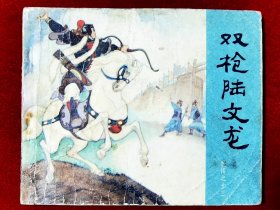 双枪陆文龙